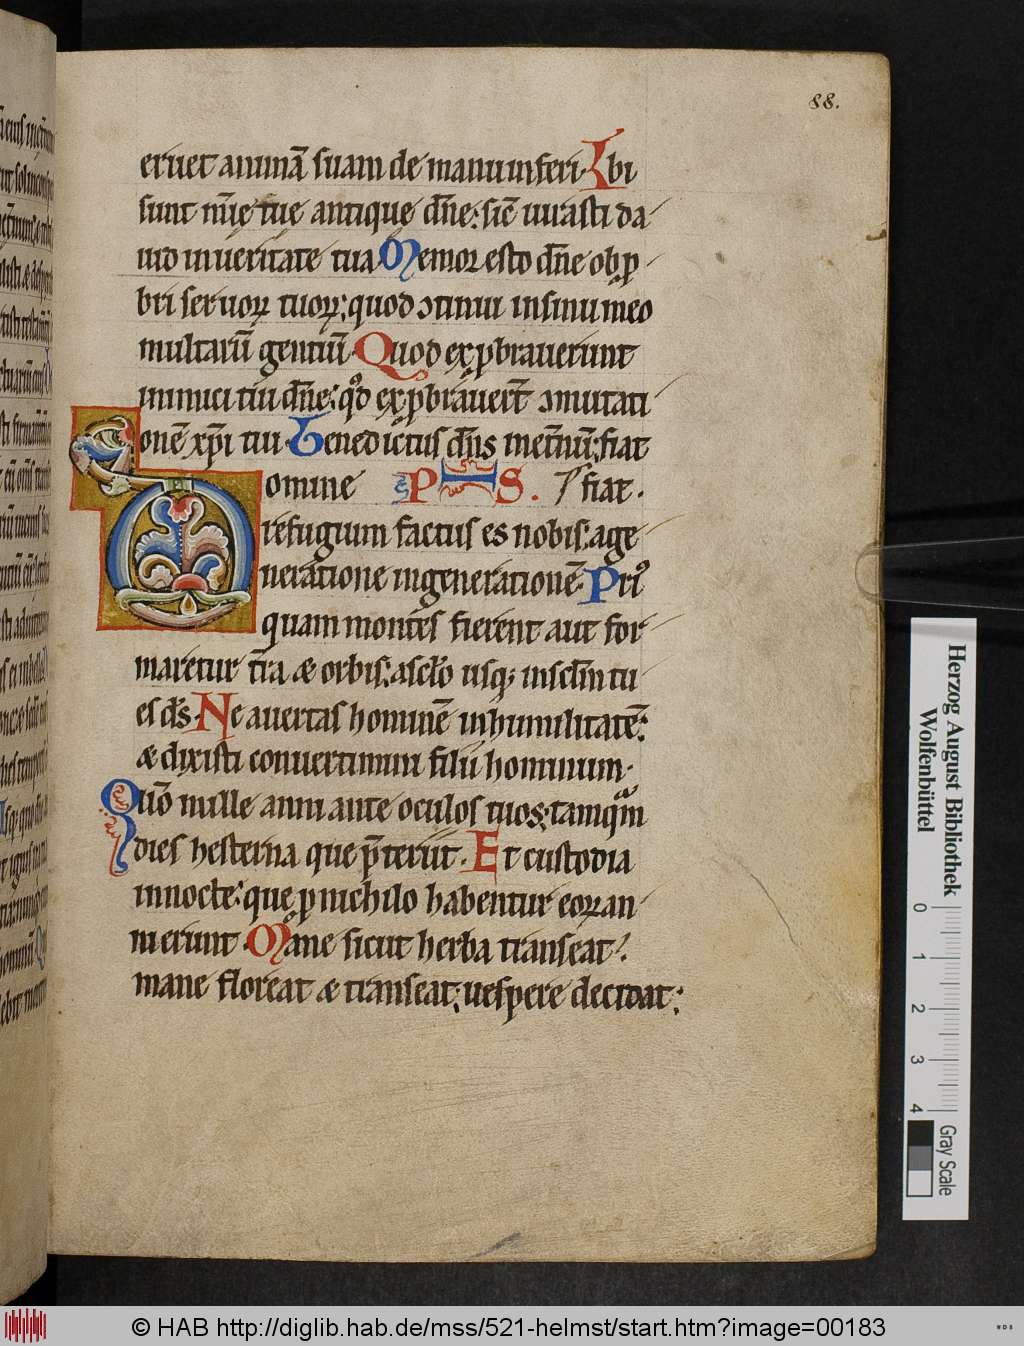 88.
eruet animā suam de manu inferi. Vbi
sunt mīe tue antique dn̄e: sic̄ iurasti da
uid in ueritate tua. Memor esto dn̄e obp̱
bri seruoꝝ tuoꝝ: quod ↄtinui in sinu meo
multarū gentiū. Quod exp̱brauerunt
inimici tui dn̄e: qͦd exp̱brauer̄t ↄmutati
onē xp̄i tui. Benedictus dn̄s inet̄nū: fiat
omine PS. fiat.
refugium factus es nobis: a ge
neratione in generationē. Priͦ
quam montes fierent aut for
maretur t̄ra æ orbis: a sclo usq; in sclm tu
es ds̄. Ne auertas hominē in humilitatē:
æ dixisti conuertimini filii hominum.
Quō mille anni ante oculos tuos: tamqm̄
dies hesterna que p̄teriit. Et custodia
in nocte: que ꝑ nichilo habentur eoꝝ an
ni erunt. Mane sicut herba transeat:
mane floreat æ transeat: uespere decidat:
Herzog August Bibliothek
Wolfenbüttel
0 1 2 3 4
Gray Scale
© HAB http://diglib.hab.de/mss/521-helmst/start.htm?image=00183